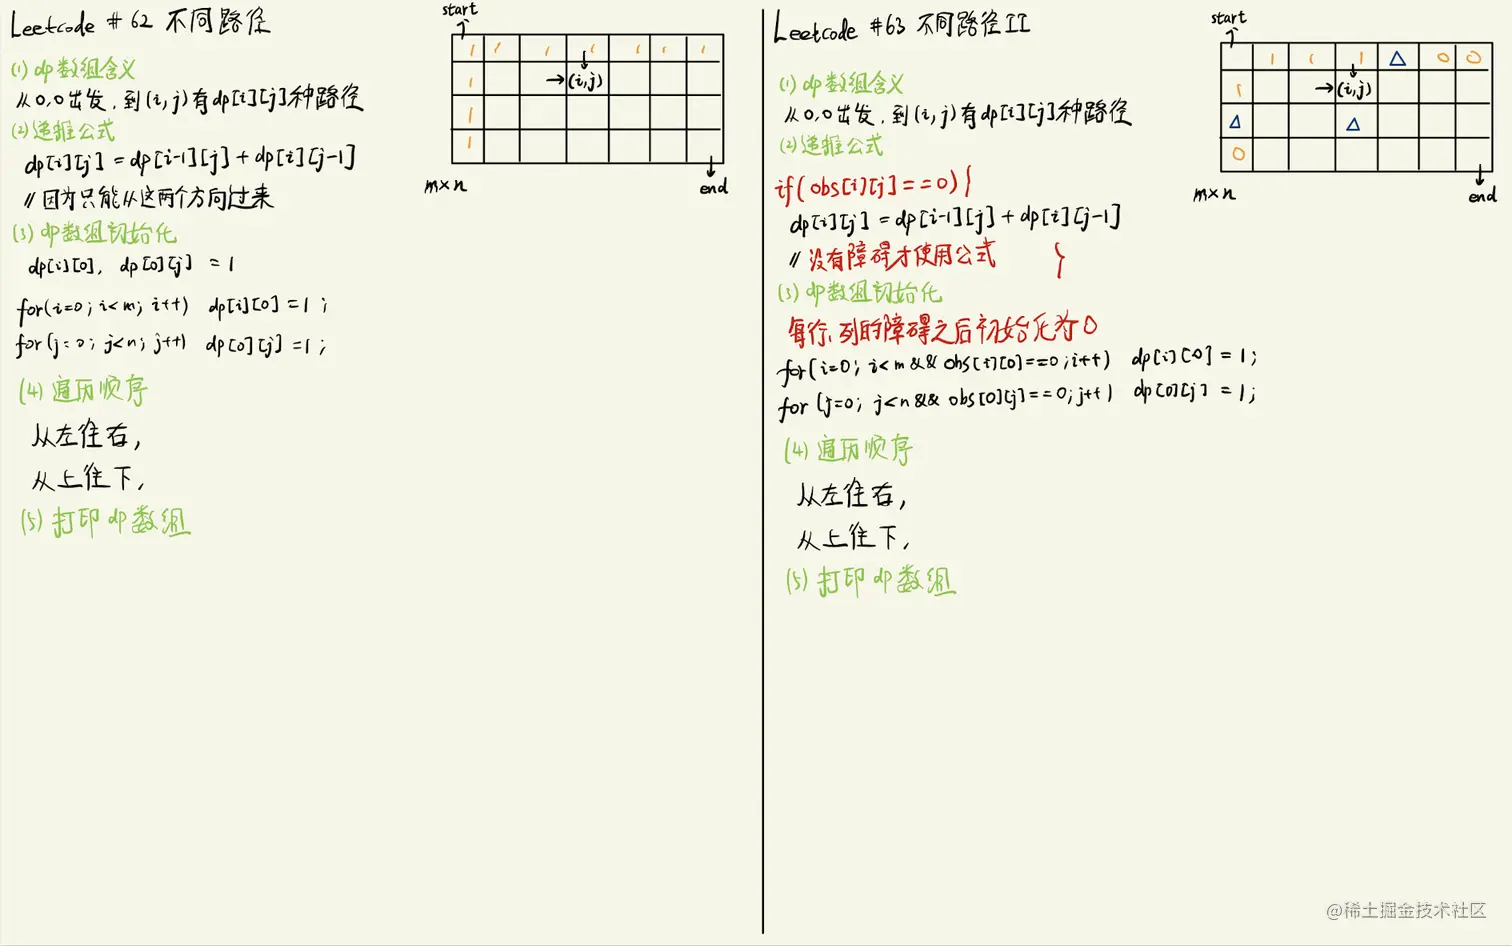 Leetcode # 62 不同路径
(1) dp数组含义
从0,0出发，到(i,j)有dp[i][j]种路径
(2)递推公式
dp[i][j] = dp[i-1][j] + dp[i][j-1]
// 因为只能从这两个方向过来
(3) dp数组初始化
dp[i][0], dp[0][j] = 1
for(i=0; i<m; i++) dp[i][0] = 1;
for(j=0; j<n; j++) dp[0][j] = 1;
(4) 遍历顺序
从左往右,
从上往下,
(5) 打印dp数组
start
1 1 1 1 1 1 1
1 →(i,j)
1
1
m×n
end
Leetcode #63 不同路径II
(1) dp数组含义
从0,0出发，到(i,j)有dp[i][j]种路径
(2)递推公式
if(obs[i][j]==0){
dp[i][j] = dp[i-1][j] + dp[i][j-1]
// 没有障碍才使用公式 }
(3) dp数组初始化
每行、列的障碍之后初始化为0
for(i=0; i<m && obs[i][0]==0; i++) dp[i][0] = 1;
for(j=0; j<n && obs[0][j]==0; j++) dp[0][j] = 1;
(4) 遍历顺序
从左往右,
从上往下,
(5) 打印dp数组
start
1 1 1 △ 0 0
1 →(i,j)
△ △
0
m×n
end
@稀土掘金技术社区